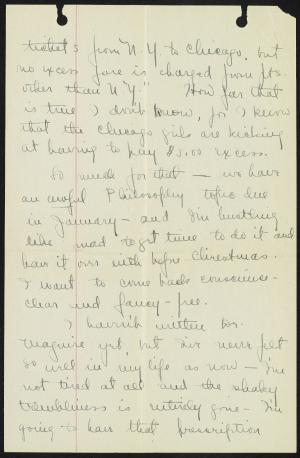 tickets from N.Y. to Chicago, but
no excess fare is charged from pts.
other than N.Y." How far that
is true I don't know, for I know
that the Chicago girls are kicking
at having to pay $5.00 excess.
So much for that — we have
an awful Philosophy topic due
in January — and I'm hustling
like mad to get time to do it and
have it over with before Christmas.
I want to come back conscience-
clear and fancy-free.
I haven't written Dr.
Maguire yet, but I've never felt
so well in my life as now — I'm
not tired at all and the shaky
trembliness is entirely gone — I'm
going to have that prescription